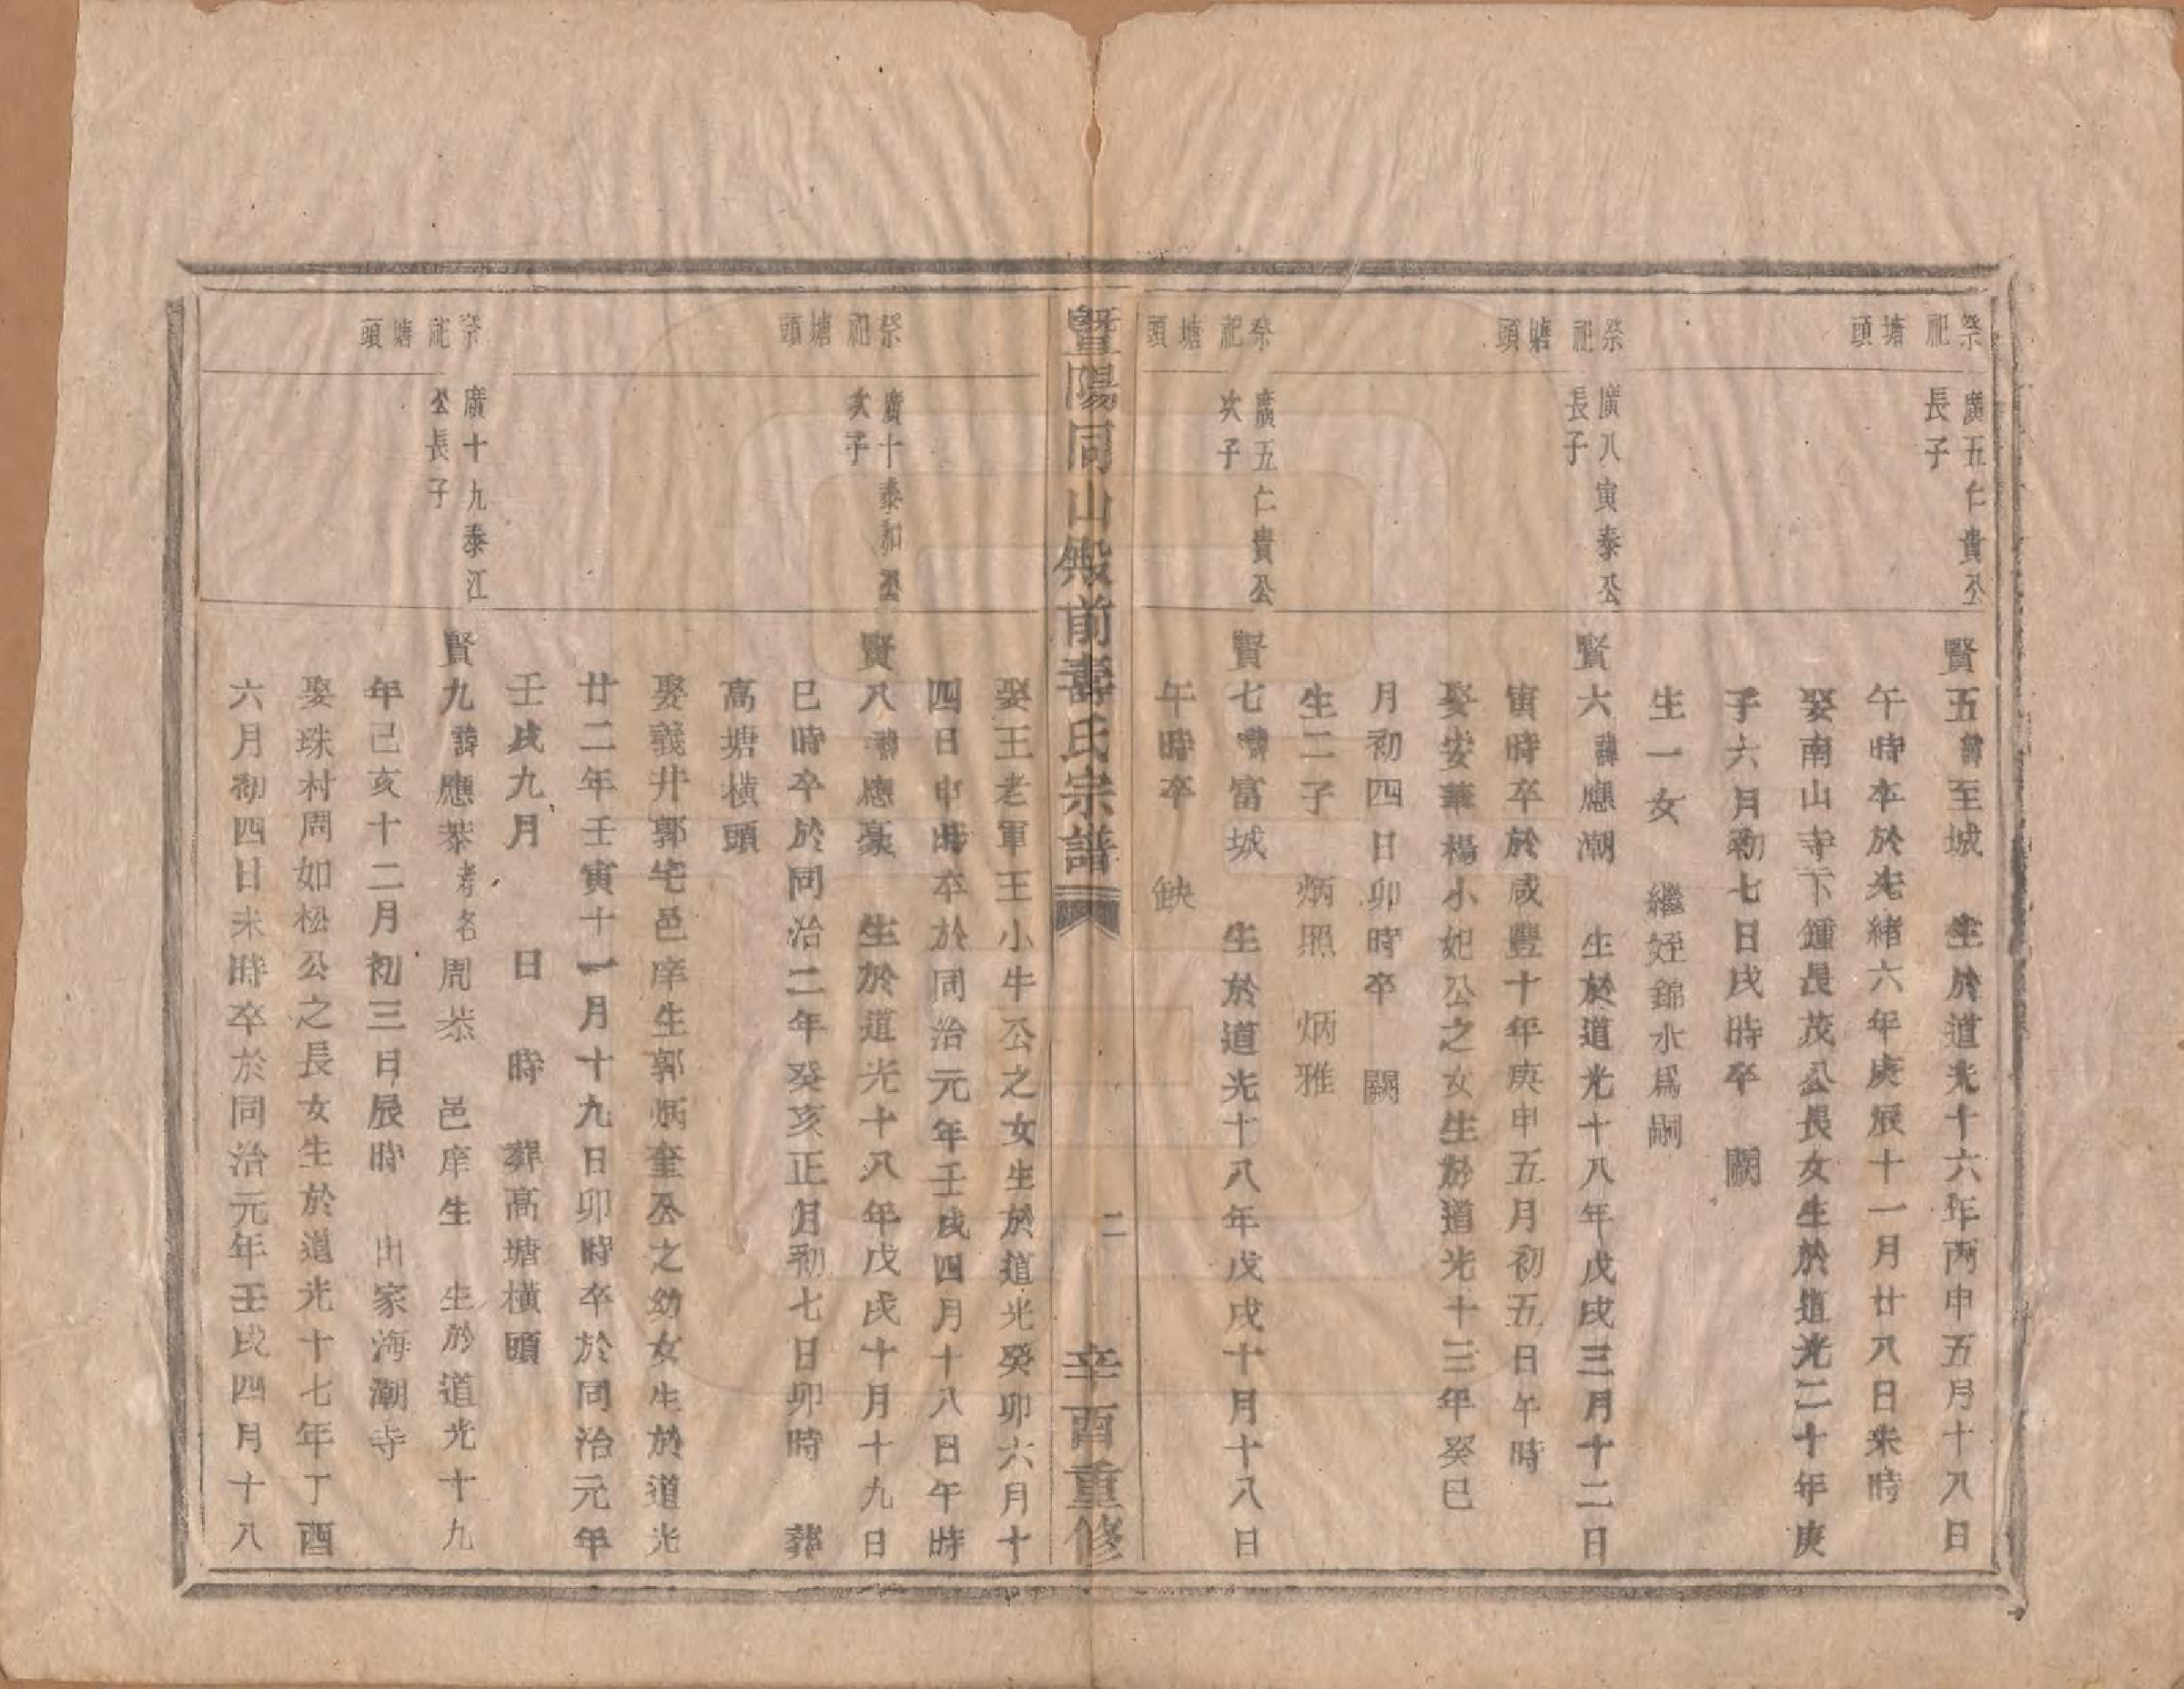 祭祀塘頭
廣五仁貴公
長子
賢五諱至城　生於道光十六年丙申五月十八日
午時卒於光緒六年庚辰十一月廿八日未時
娶南山寺下鍾長茂公長女生於道光二十年庚
子六月初七日戌時卒　闕
生一女　繼姪錦水爲嗣
祭祀塘頭
廣八寅泰公
長子
賢六諱應潮　生於道光十八年戊戌三月十二日
寅時卒於咸豐十年庚申五月初五日午時
娶安華楊小妃公之女生於道光十三年癸巳
月初四日卯時卒　闕
生二子　炳照　炳雅
祭祀塘頭
廣五仁貴公
次子
賢七諱富城　生於道光十八年戊戌十月十八日
午時卒　缺
暨陽同山殿前壽氏宗譜　二　辛酉重修
娶王老軍王小牛公之女生於道光癸卯六月十
四日申時卒於同治元年壬戌四月十八日午時
祭祀塘頭
廣十泰和公
次子
賢八諱應豪　生於道光十八年戊戌十月十九日
巳時卒於同治二年癸亥正月初七日卯時　葬
高塘橫頭
娶義井郭宅邑庠生郭炳奎公之幼女生於道光
廿二年壬寅十一月十九日卯時卒於同治元年
壬戌九月　日　時　葬高塘橫頭
祭祀塘頭
廣十九泰江
公長子
賢九諱應恭考名周恭　邑庠生　生於道光十九
年己亥十二月初三日辰時　出家海潮寺
娶珠村周如松公之長女生於道光十七年丁酉
六月初四日未時卒於同治元年壬戌四月十八